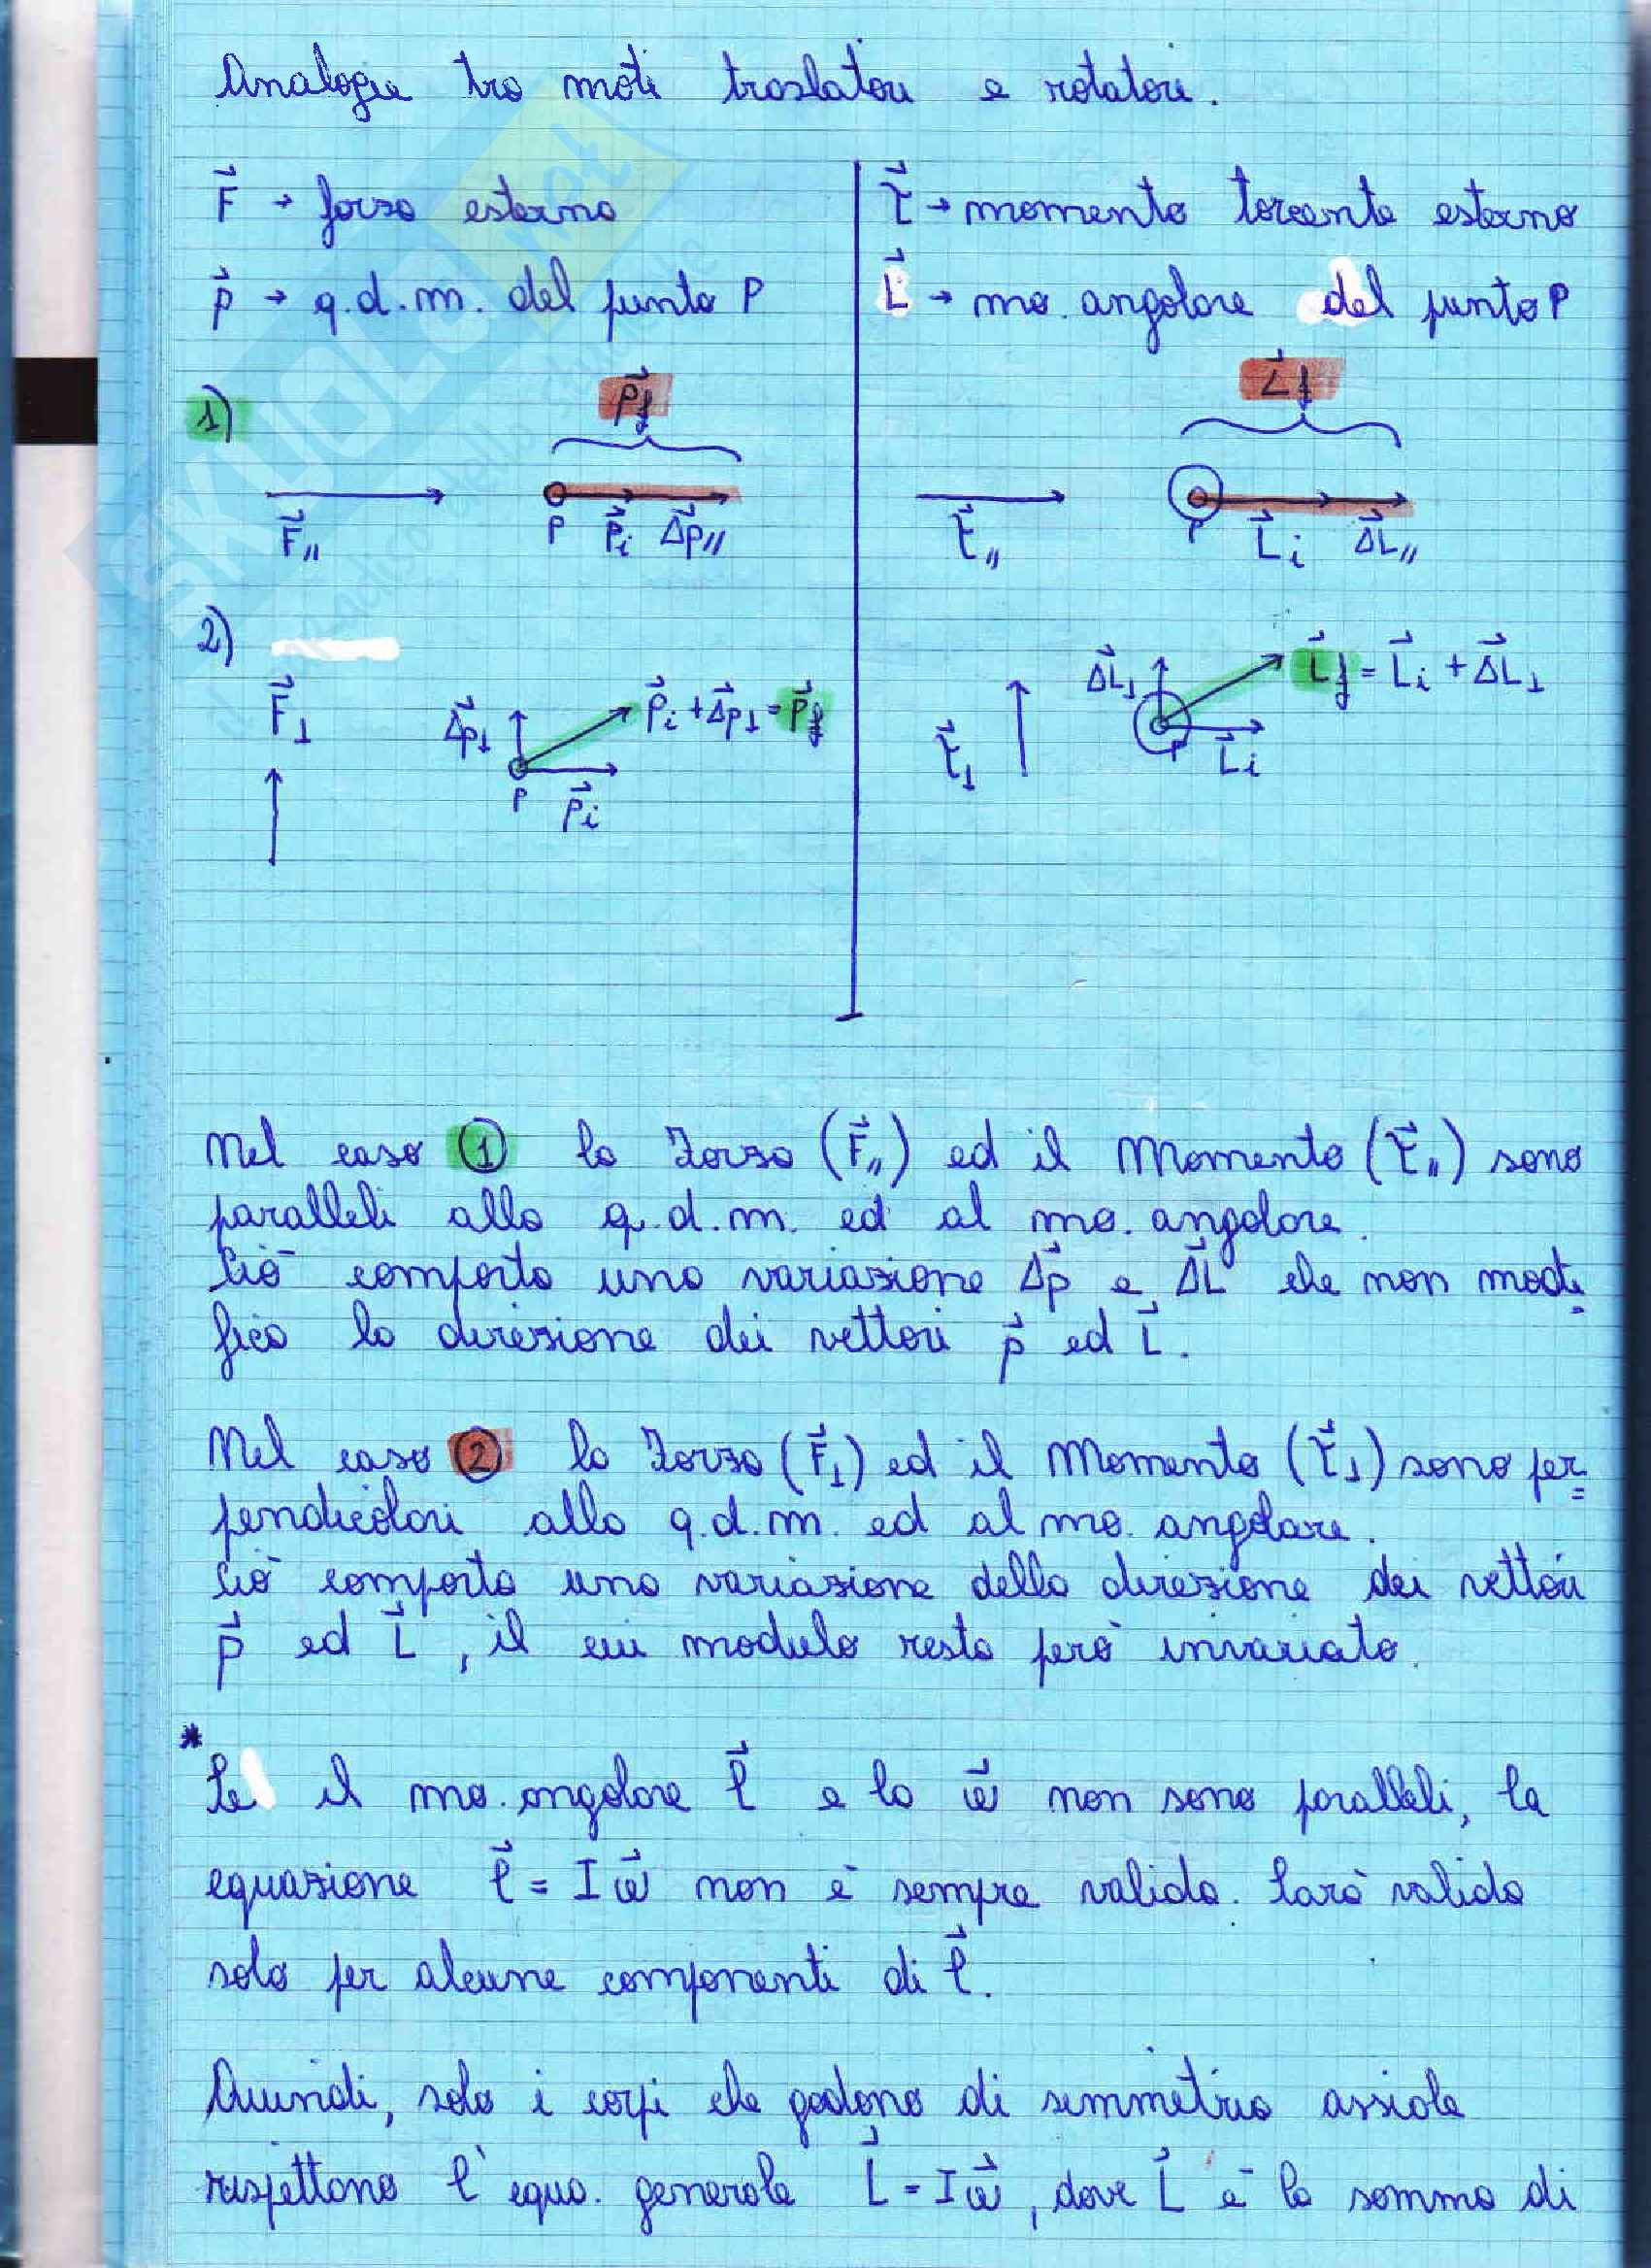 Analogie tra moti traslatori e rotatori.
F⃗ → forza esterna
p⃗ → q.d.m. del punto P
τ⃗ → momento torcente esterno
L⃗ → mo. angolare del punto P
1)
p⃗f
F⃗∥
P p⃗i Δp⃗∥
L⃗f
τ⃗∥
P L⃗i ΔL⃗∥
2)
F⃗⊥
Δp⃗⊥
p⃗i + Δp⃗⊥ = p⃗f
P p⃗i
τ⃗⊥
ΔL⃗⊥
L⃗f = L⃗i + ΔL⃗⊥
P L⃗i
Nel caso ① la Forza (F⃗∥) ed il Momento (τ⃗∥) sono
paralleli alla q.d.m. ed al mo. angolare.
Ciò comporta una variazione Δp⃗ e ΔL⃗ che non modi
fica la direzione dei vettori p⃗ ed L⃗.
Nel caso ② la Forza (F⃗⊥) ed il Momento (τ⃗⊥) sono per
pendicolari alla q.d.m. ed al mo. angolare.
Ciò comporta una variazione della direzione dei vettori
p⃗ ed L⃗, il cui modulo resta però invariato.
* Se il mo. angolare ℓ⃗ e la ω⃗ non sono paralleli, la
equazione ℓ⃗ = Iω⃗ non è sempre valida. Sarà valida
solo per alcune componenti di ℓ⃗.
Quindi, solo i corpi che godono di simmetria assiale
rispettano l'equa. generale L⃗ = Iω⃗, dove L⃗ è la somma di
SKUOLA.net